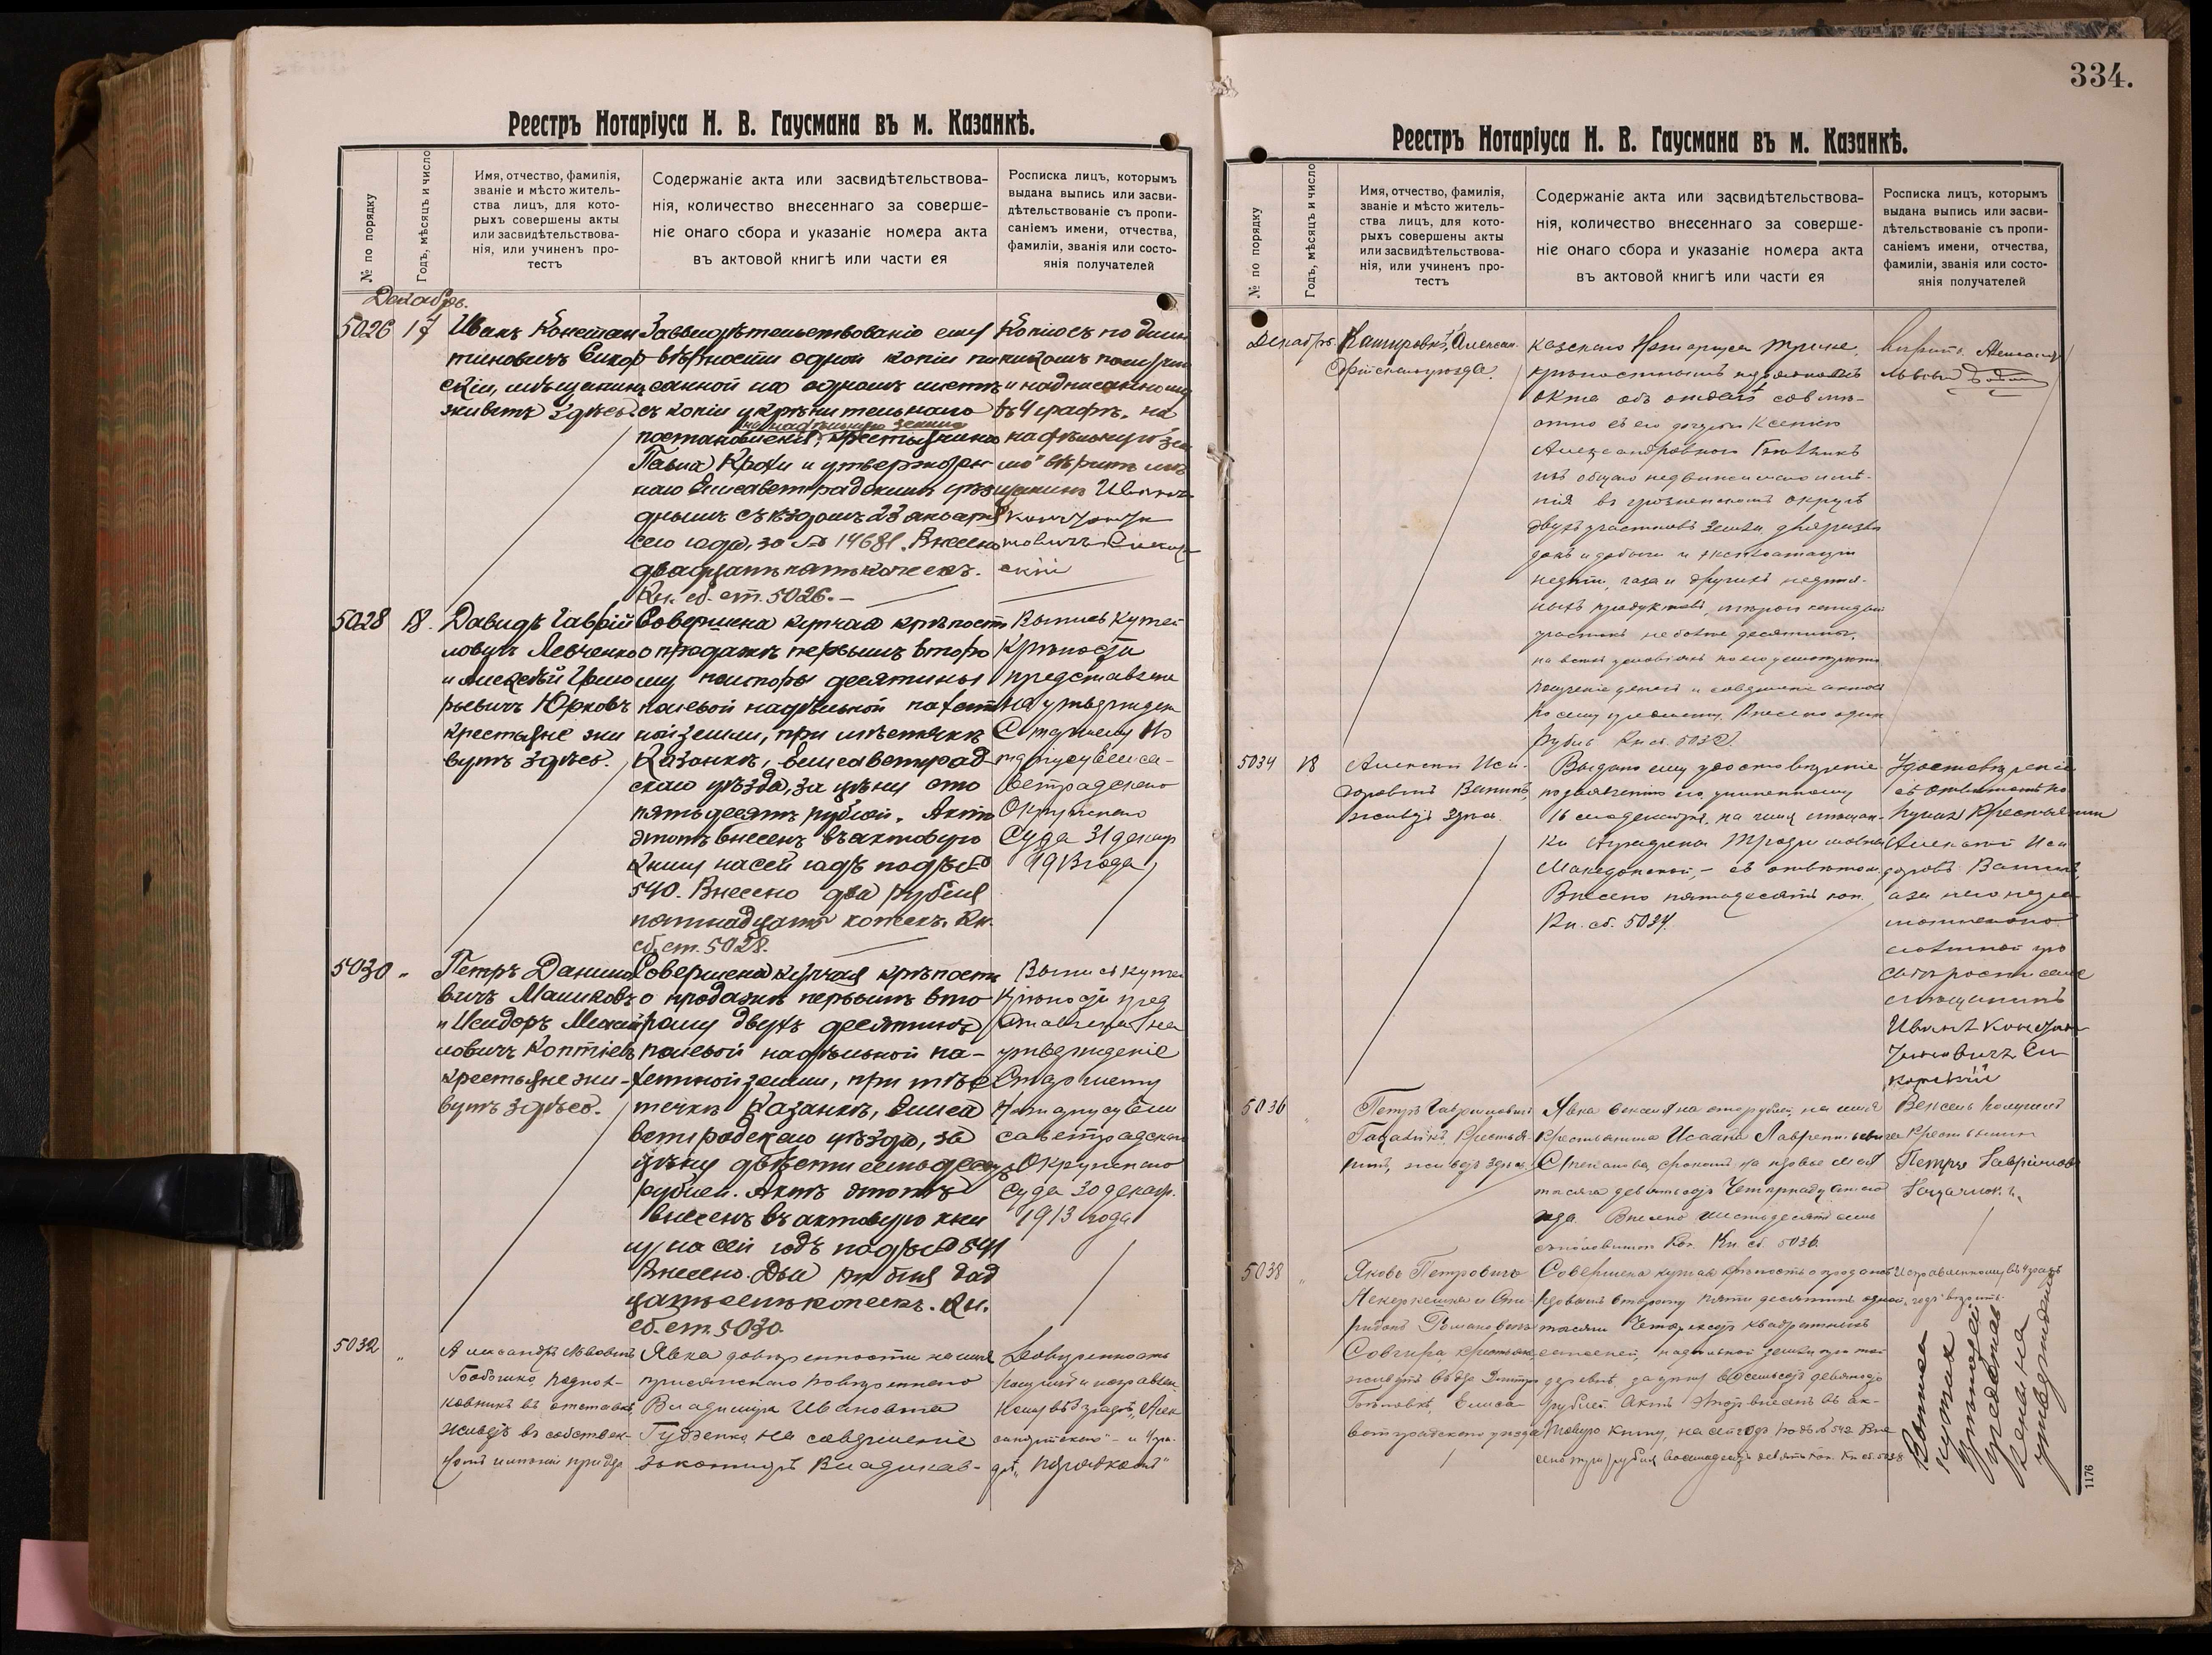 Реестръ Нотаріуса Н. В. Гаусмана въ м. Казанкѣ.
№ по порядку
Годъ, мѣсяцъ и число
Имя, отчество, фамилія,
званіе и мѣсто житель-
ства лицъ, для кото-
рыхъ совершены акты
или засвидѣтельствова-
нія, или учиненъ про-
тестъ
Содержаніе акта или засвидѣтельствова-
нія, количество внесеннаго за соверше-
ніе онаго сбора и указаніе номера акта
въ актовой книгѣ или части ея
Росписка лицъ, которымъ
выдана выпись или засви-
дѣтельствованіе съ пропи-
саніемъ имени, отчества,
фамиліи, званія или состо-
янія получателей
Декабрь.
5026
17
Иванъ Констан
тиновичъ Сикор
скій, мѣщанинъ
живетъ здѣсь.
Засвидѣтельствованіе ему
вѣрности одной копіи пи
санной на одномъ листѣ
съ копіи укрѣпительнаго
постановленія, крестьянина
Павла и утвержден
наго Елисаветградскимъ уѣз
днымъ съѣздомъ 23 января
сего года, за № 14681. Внесено
двадцать пять копеекъ.
Кн. сб. ст. 5026.
и надписанному
въ 4 графѣ, на
надѣльную зе
млю вѣрить мѣ
щанинъ Иванъ
Констан
тиновичъ Сикор
скій
5028
18.
Давидъ Гаврій
ловичъ Левченко
и Алексѣй Григо
рьевичъ Юрковъ
крестьяне жи
вутъ здѣсь.
Совершена купчая крѣпость
о продажѣ первымъ второ
му полторы десятины
полевой надѣльной пахат
ной земли, при мѣстечкѣ
Казанкѣ, Елисаветград-
скаго уѣзда, за цѣну сто
пятьдесятъ рублей. Актъ
этотъ внесенъ въ актовую
книгу на сей годъ подъ №
540. Внесено два рубля
пятнадцать копеекъ. Кн.
сб. ст. 5028.
Выпись купчей
крѣпости
представлена
на утвержден
Старшему Но
таріусу Елиса-
ветградскаго
Окружнаго
Суда 31 декабр
1913 года
5030
"
Петръ Данило
вичъ Машковъ
и Исидоръ Михай
ловичъ Коптіевъ
крестьяне жи-
вутъ здѣсь.
Совершена купчая крѣпость
о продажѣ первымъ вто-
рому двухъ десятинъ
полевой надѣльной па-
хатной земли, при мѣс
течкѣ Казанкѣ, Елиса
ветградскаго уѣзда, за
цѣну двѣсти семьдесятъ
рублей. Актъ этотъ
внесенъ въ актовую кни
гу на сей годъ подъ № 541
Внесено. Два рубля двад
цать семь копеекъ. Кн.
сб. ст. 5030.
Выпись купчей
крѣпости пред
ставлена на
утвержденіе
Старшему
Нотаріусу Ели
саветградскаго
Окружнаго
Суда 30 декабр.
1913 года
5032
"
Александръ Львовичъ
Бобошко, подпол-
ковникъ въ отставкѣ
живетъ въ собствен-
номъ имѣніи при дер
Явка довѣренности на имя
присяжнаго повѣреннаго
Владиміра Ивановича
Гудзенко, на совершеніе
Владикав-
Довѣренность
получилъ и исправлен
ному въ 3 графѣ, "Алек
сандрійскаго" - и 4 гра-
фѣ,
334.
Реестръ Нотаріуса Н. В. Гаусмана въ м. Казанкѣ.
№ по порядку
Годъ, мѣсяцъ и число
Имя, отчество, фамилія,
званіе и мѣсто житель-
ства лицъ, для кото-
рыхъ совершены акты
или засвидѣтельствова-
нія, или учиненъ про-
тестъ
Содержаніе акта или засвидѣтельствова-
нія, количество внесеннаго за соверше-
ніе онаго сбора и указаніе номера акта
въ актовой книгѣ или части ея
Росписка лицъ, которымъ
выдана выпись или засви-
дѣтельствованіе съ пропи-
саніемъ имени, отчества,
фамиліи, званія или состо-
янія получателей
Декабрь.
Алексан
дрійскаго уѣзда.
казскаго Нотаріуса
акта объ отдачѣ совмѣ-
стно съ его дочерью Ксеніею
Александровною
изъ общаго недвижимаго имѣ-
нія въ грозненскомъ округѣ
двухъ участковъ земли для развѣ
докъ и добычи и эксплоатаціи
нефти, газа и другихъ нефтя-
ныхъ продуктовъ, мѣрою каждый
участокъ не болѣе десятины,
на всехъ условіяхъ по его усмотрѣнію
полученіе денегъ и совершеніе актовъ
по сему предмету. Внесено одинъ
рубль Кн. сб. 5032.
вѣрить.
5034
18
Алексѣй Иси-
доровичъ
живетъ здѣсь.
Выдано ему удостовѣреніе
по заявленію его, учиненному
16 сего декабря, на имя мѣщан-
ки
Македонской, - съ отвѣтомъ.
Внесено пятьдесятъ коп.
Кн. сб. 5034.
Удостовѣреніе
съ отвѣтомъ по
лучилъ крестьянин
Алексѣй Иси
доровъ
а за него негра
мотнаго по
личной про
сьбѣ росписался
мѣщанинъ
Иванъ Констан
тиновичъ Си
корскій
5036
"
Петръ Гавриловичъ
крестья-
нинъ, живетъ здѣсь.
Явка векселя на сто рублей, на имя
крестьянина Исаака Лаврентьевича
Степанова, срокомъ на первое мая
тысяча девятьсотъ четырнадцатаго
года. Внесено шестьдесятъ семь
съ половиною коп. Кн. сб. 5036.
Вексель получилъ
крестьянинъ
Петръ Гавриловъ
5038
"
Яковъ Петровичъ
Некеркешка и Спи
ридонъ Романовичъ
Совгира, крестьяне,
живутъ въ дер. Дмитро
Головкѣ, Елиса-
ветградскаго уѣзда
Совершена купчая крѣпость о продажѣ
первымъ второму пяти десятинъ одной
тысячи четырехсотъ квадратныхъ
саженей, надѣльной земли при той
деревнѣ за цѣну восемьсотъ девяносто
рублей. Актъ этотъ внесенъ въ ак-
товую книгу, на сей годъ подъ № 542 Вне
сено три рубля восемьдесятъ девять коп. Кн. сб. 5038
Исправленному въ 4 графѣ
"годъ" вѣрить.
Выпись
купчей
крѣпости
представ
лена на
утвержденіе
1176